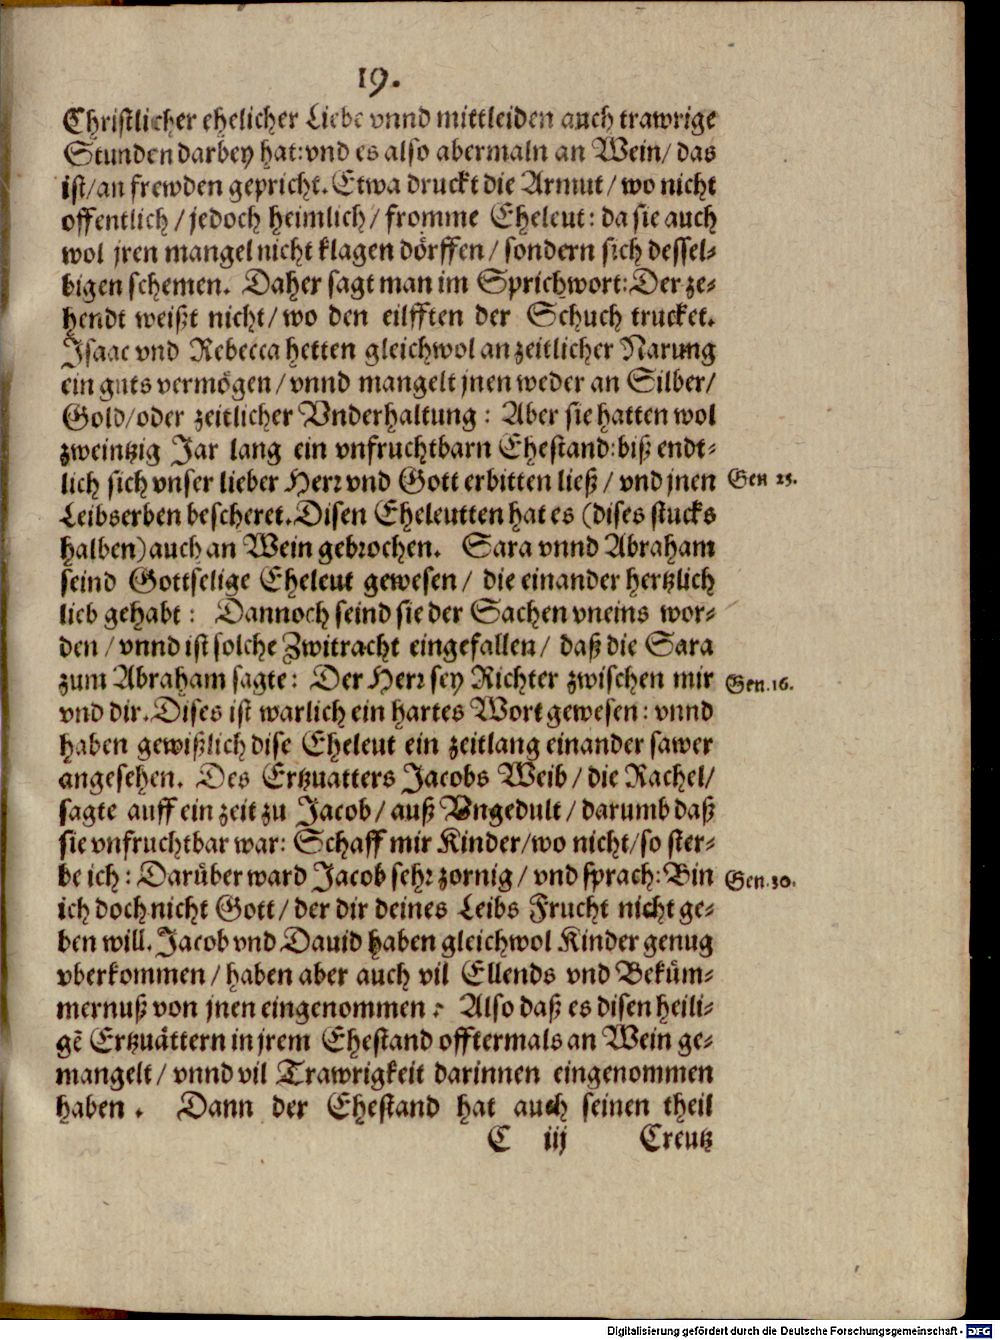 19.
Christlicher ehelicher Liebe vnnd mittleiden auch trawrige
Stunden darbey hat: vnd es also abermaln an Wein/ das
ist/ an frewden gepricht. Etwa druckt die Armut/ wo nicht
offentlich/ jedoch heimlich/ fromme Eheleut: da sie auch
wol jren mangel nicht klagen dörffen/ sondern sich dessel-
bigen schemen. Daher sagt man im Sprichwort: Der ze-
hendt weißt nicht/ wo den eilfften der Schuch trucket.
Isaac vnd Rebecca hetten gleichwol an zeitlicher Narung
ein guts vermögen/ vnnd mangelt jnen weder an Silber/
Gold/ oder zeitlicher Vnderhaltung: Aber sie hatten wol
zweintzig Jar lang ein vnfruchtbarn Ehestand: biß endt-
lich sich vnser lieber Herr vnd Gott erbitten ließ/ vnd jnen Gen 25.
Leibserben bescheret. Disen Eheleutten hat es (dises stucks
halben) auch an Wein gebrochen. Sara vnnd Abraham
seind Gottselige Eheleut gewesen/ die einander hertzlich
lieb gehabt: Dannoch seind sie der Sachen vneins wor-
den/ vnnd ist solche Zwitracht eingefallen/ daß die Sara
zum Abraham sagte: Der Herr sey Richter zwischen mir Gen. 16.
vnd dir. Dises ist warlich ein hartes Wort gewesen: vnnd
haben gewißlich dise Eheleut ein zeitlang einander sawer
angesehen. Des Ertzuatters Jacobs Weib/ die Rachel/
sagte auff ein zeit zu Jacob/ auß Vngedult/ darumb daß
sie vnfruchtbar war: Schaff mir Kinder/ wo nicht/ so ster-
be ich: Darüber ward Jacob sehr zornig/ vnd sprach: Bin Gen. 30.
ich doch nicht Gott/ der dir deines Leibs Frucht nicht ge-
ben will. Jacob vnd Dauid haben gleichwol Kinder genug
vberkommen/ haben aber auch vil Ellends vnd Beküm-
mernuß von jnen eingenommen: Also daß es disen heili-
gē Ertzuättern in jrem Ehestand offtermals an Wein ge-
mangelt/ vnnd vil Trawrigkeit darinnen eingenommen
haben. Dann der Ehestand hat auch seinen theil
C iij Creutz
Digitalisierung gefördert durch die Deutsche Forschungsgemeinschaft - DFG